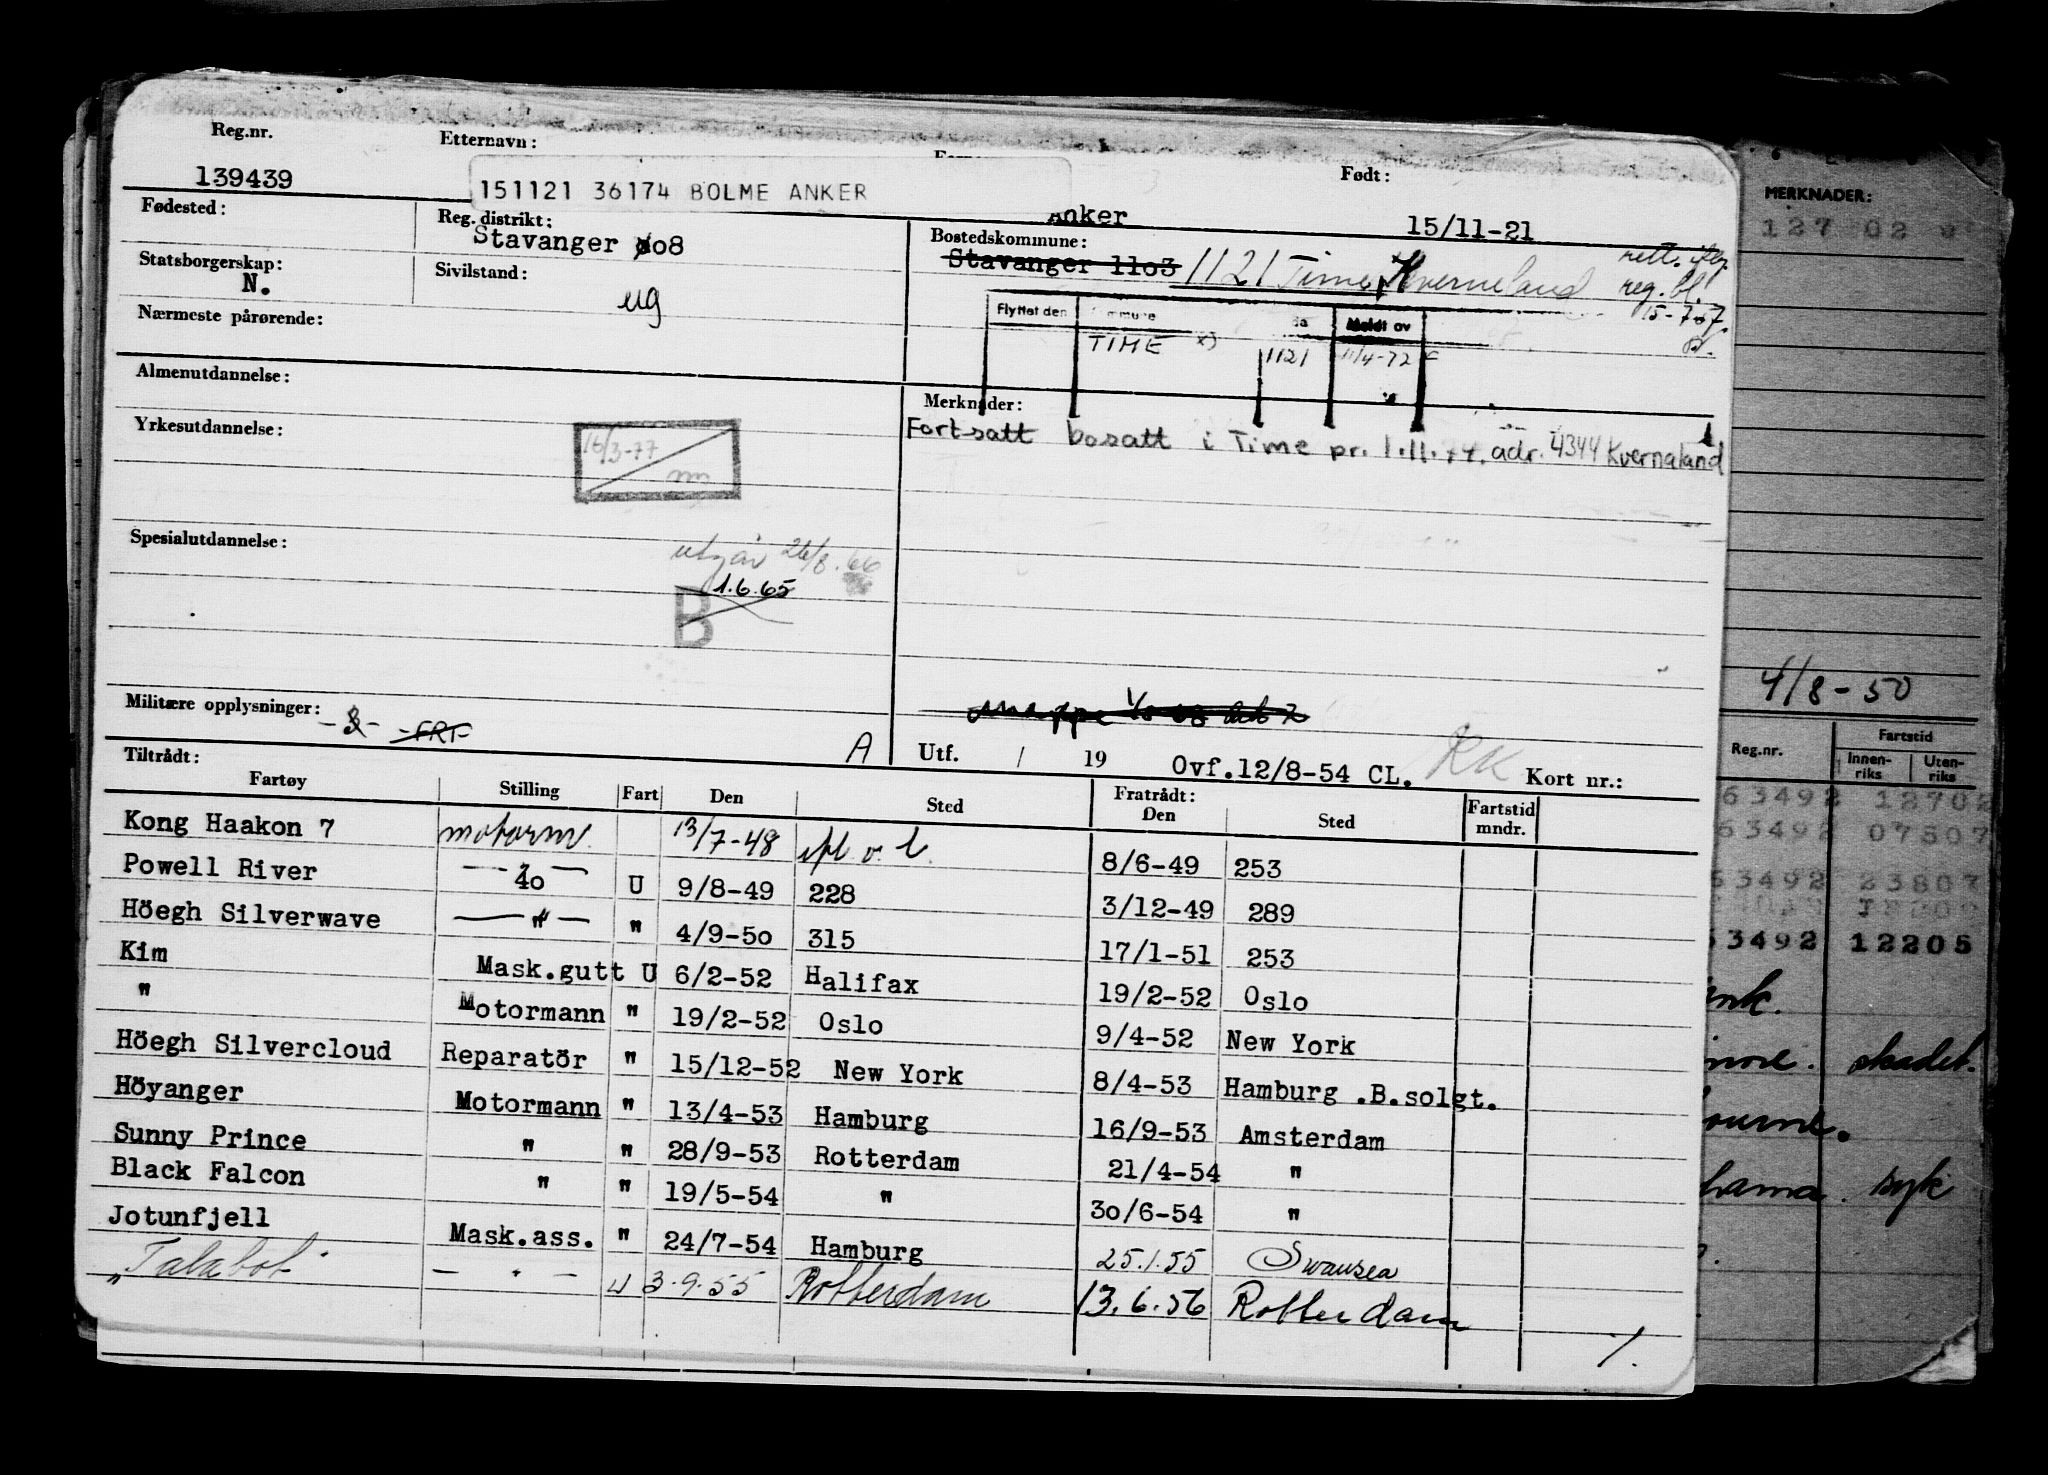 Reg.nr. Etternavn: Født: MERKNADER:
139439 151121 36174 BOLME ANKER Anker 15/11-21 127 02
Fødested: Reg. distrikt: Bostedskommune:
Stavanger øo8 Stavanger 11o3 1121 Time, Kverneland rett. iflg.
Statsborgerskap: Sivilstand: reg. bl.
N. ug 15-7-57.
Nærmeste pårørende: Flyttet den Meldt av
TIME x) 1121 11/4-72
Almenutdannelse: Merknader:
Yrkesutdannelse: Fortsatt bosatt i Time pr. 1.11.74. adr. 4344 Kvernaland
16/3-77
Spesialutdannelse: utgår 26/8.66
1.6.65
B
4/8-50
Militære opplysninger: -FRT-
A Utf. / 19 Ovf.12/8-54 CL. RK Kort nr.:
Tiltrådt: Fratrådt: Fartstid Reg.nr. Fartstid
Fartøy Stilling Fart Den Sted Den Sted mndr. Innen-riks Uten-riks
Kong Haakon 7 motorm. 13/7-48 8/6-49 253 63492 12702
Powell River 40 U 9/8-49 228 3/12-49 289 63492 07507
Höegh Silverwave — " — " 4/9-5o 315 17/1-51 253 63492 23807
Kim Mask.gutt U 6/2-52 Halifax 19/2-52 Oslo 63492 12205
" Motormann " 19/2-52 Oslo 9/4-52 New York
Höegh Silvercloud Reparatör " 15/12-52 New York 8/4-53 Hamburg .B.solgt. skadet.
Höyanger Motormann " 13/4-53 Hamburg 16/9-53 Amsterdam
Sunny Prince " " 28/9-53 Rotterdam 21/4-54 "
Black Falcon " " 19/5-54 " 3o/6-54 " syk
Jotunfjell Mask.ass. " 24/7-54 Hamburg 25.1.55 Swansea
" Talabot — " — U 3.9.55 Rotterdam 13.6.56 Rotterdam